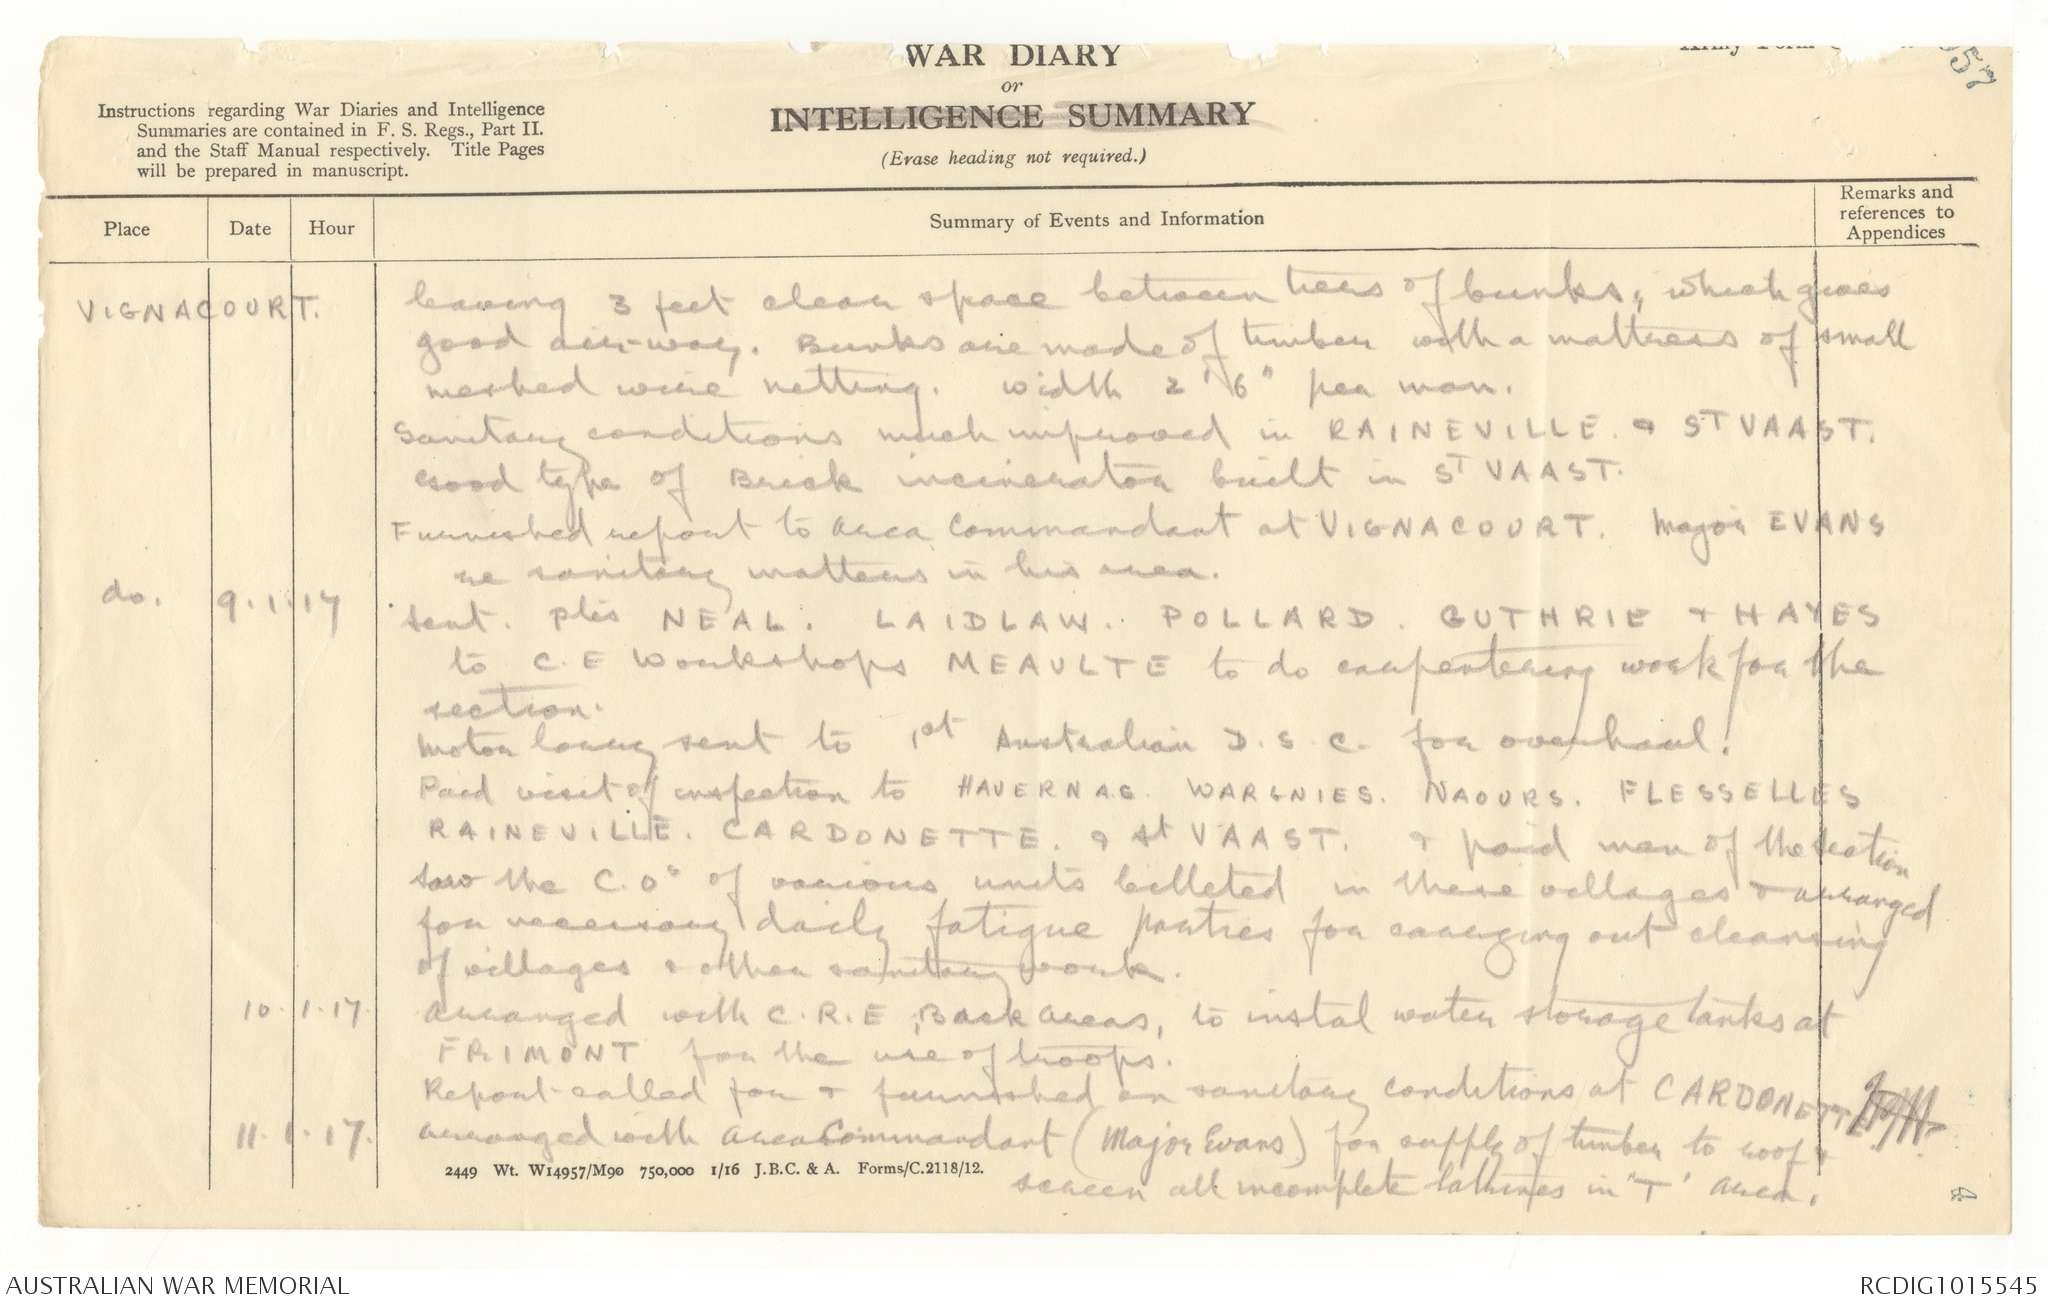 WAR DIARY
or
INTELLIGENCE SUMMARY
(Erase heading not required.)
Army Form
Instructions regarding War Diaries and Intelligence
Summaries are contained in F. S. Regs., Part II.
and the Staff Manual respectively. Title Pages
will be prepared in manuscript.
Place Date Hour Summary of Events and Information Remarks and references to Appendices
VIGNACOURT. leaving 3 feet clear space between tiers of bunks, which gives
good air-way. Bunks are made of timber with a mattress of small
meshed wire netting. width 2'6" per man.
Sanitary conditions much improved in RAINEVILLE. & ST VAAST.
Good type of Brick incinerator built in ST VAAST.
Furnished report to area Commandant at VIGNACOURT. Major EVANS
re sanitary matters in his area.
do. 9.1.17 Sent. Ptes NEAL. LAIDLAW. POLLARD. GUTHRIE & HAYES
to C.E Workshops MEAULTE to do carpentering work for the
section.
Motor lorry sent to 1st Australian D.S.C. for overhaul.
Paid visit of inspection to HAVERNAS. WARGNIES. NAOURS. FLESSELLES
RAINEVILLE. CARDONETTE. & St VAAST. & paid men of the section
Saw the C.Os of various units billeted in these villages & arranged
for necessary daily fatigue parties for carrying out cleansing
of villages & other sanitary work.
10.1.17. Arranged with C.R.E, Back areas, to instal water storage tanks at
FRIMONT for the use of troops.
Report called for & furnished on sanitary conditions at CARDONETTE
11.1.17. Arranged with area Commandant (Major Evans) for supply of timber to roof &
screen all incomplete latrines in "T" area.
2449 Wt. W14957/M90 750,000 1/16 J.B.C. & A. Forms/C.2118/12.
AUSTRALIAN WAR MEMORIAL
RCDIG1015545